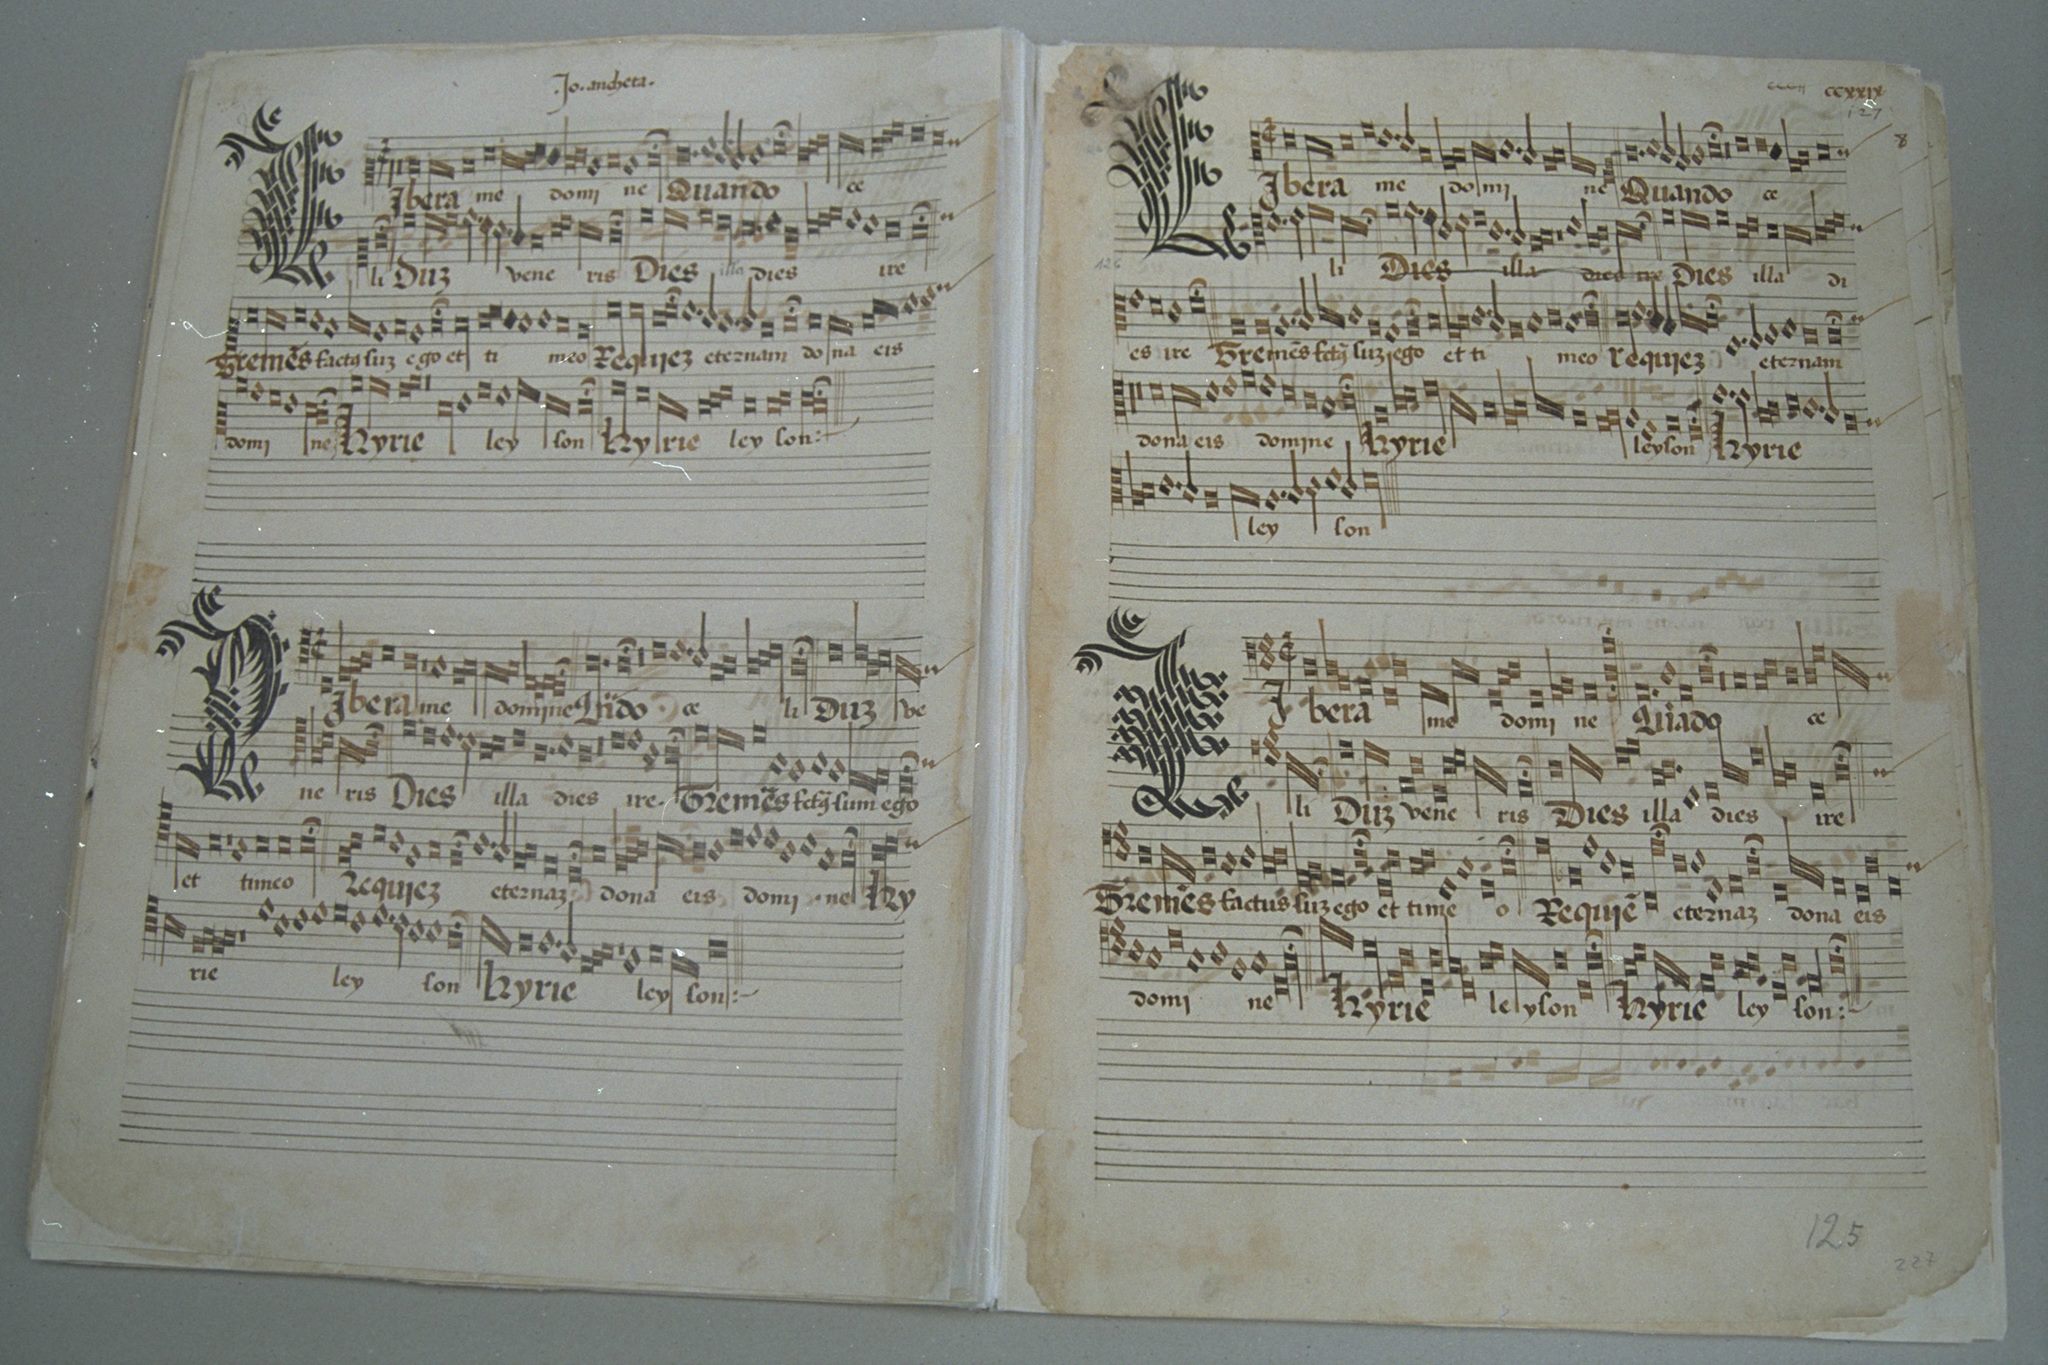 .Jo. ancheta.
Ibera me domi ne Quando ce
li Duz vene ris Dies illa dies ire
Tremēs factꝰ suz ego et ti meo Requiez eternam do na eis
domi ne Kyrie ley son Ky rie ley son:
Ibera me domine Qūdo ce li Duz ve
ne ris Dies illa dies ire. Tremēs fctꝰ sum ego
et timeo Requiez eternaz dona eis domi ne Ky
rie ley son Kyrie ley son:
ccxxix
127
8
L
Ibera me domi ne Quando ce
li Dies illa dies ire Dies illa di
126
es ire Tremēs fctꝰ suz ego et ti meo requiez eternam
dona eis domine Kyrie leyson Kyrie
ley son
I bera me domi ne Quādo ce
li Duz vene ris Dies illa dies ire
Tremēs factus suz ego et time o Requiē eternaz dona eis
domi ne Kyrie le yson Kyrie ley son:
125
227